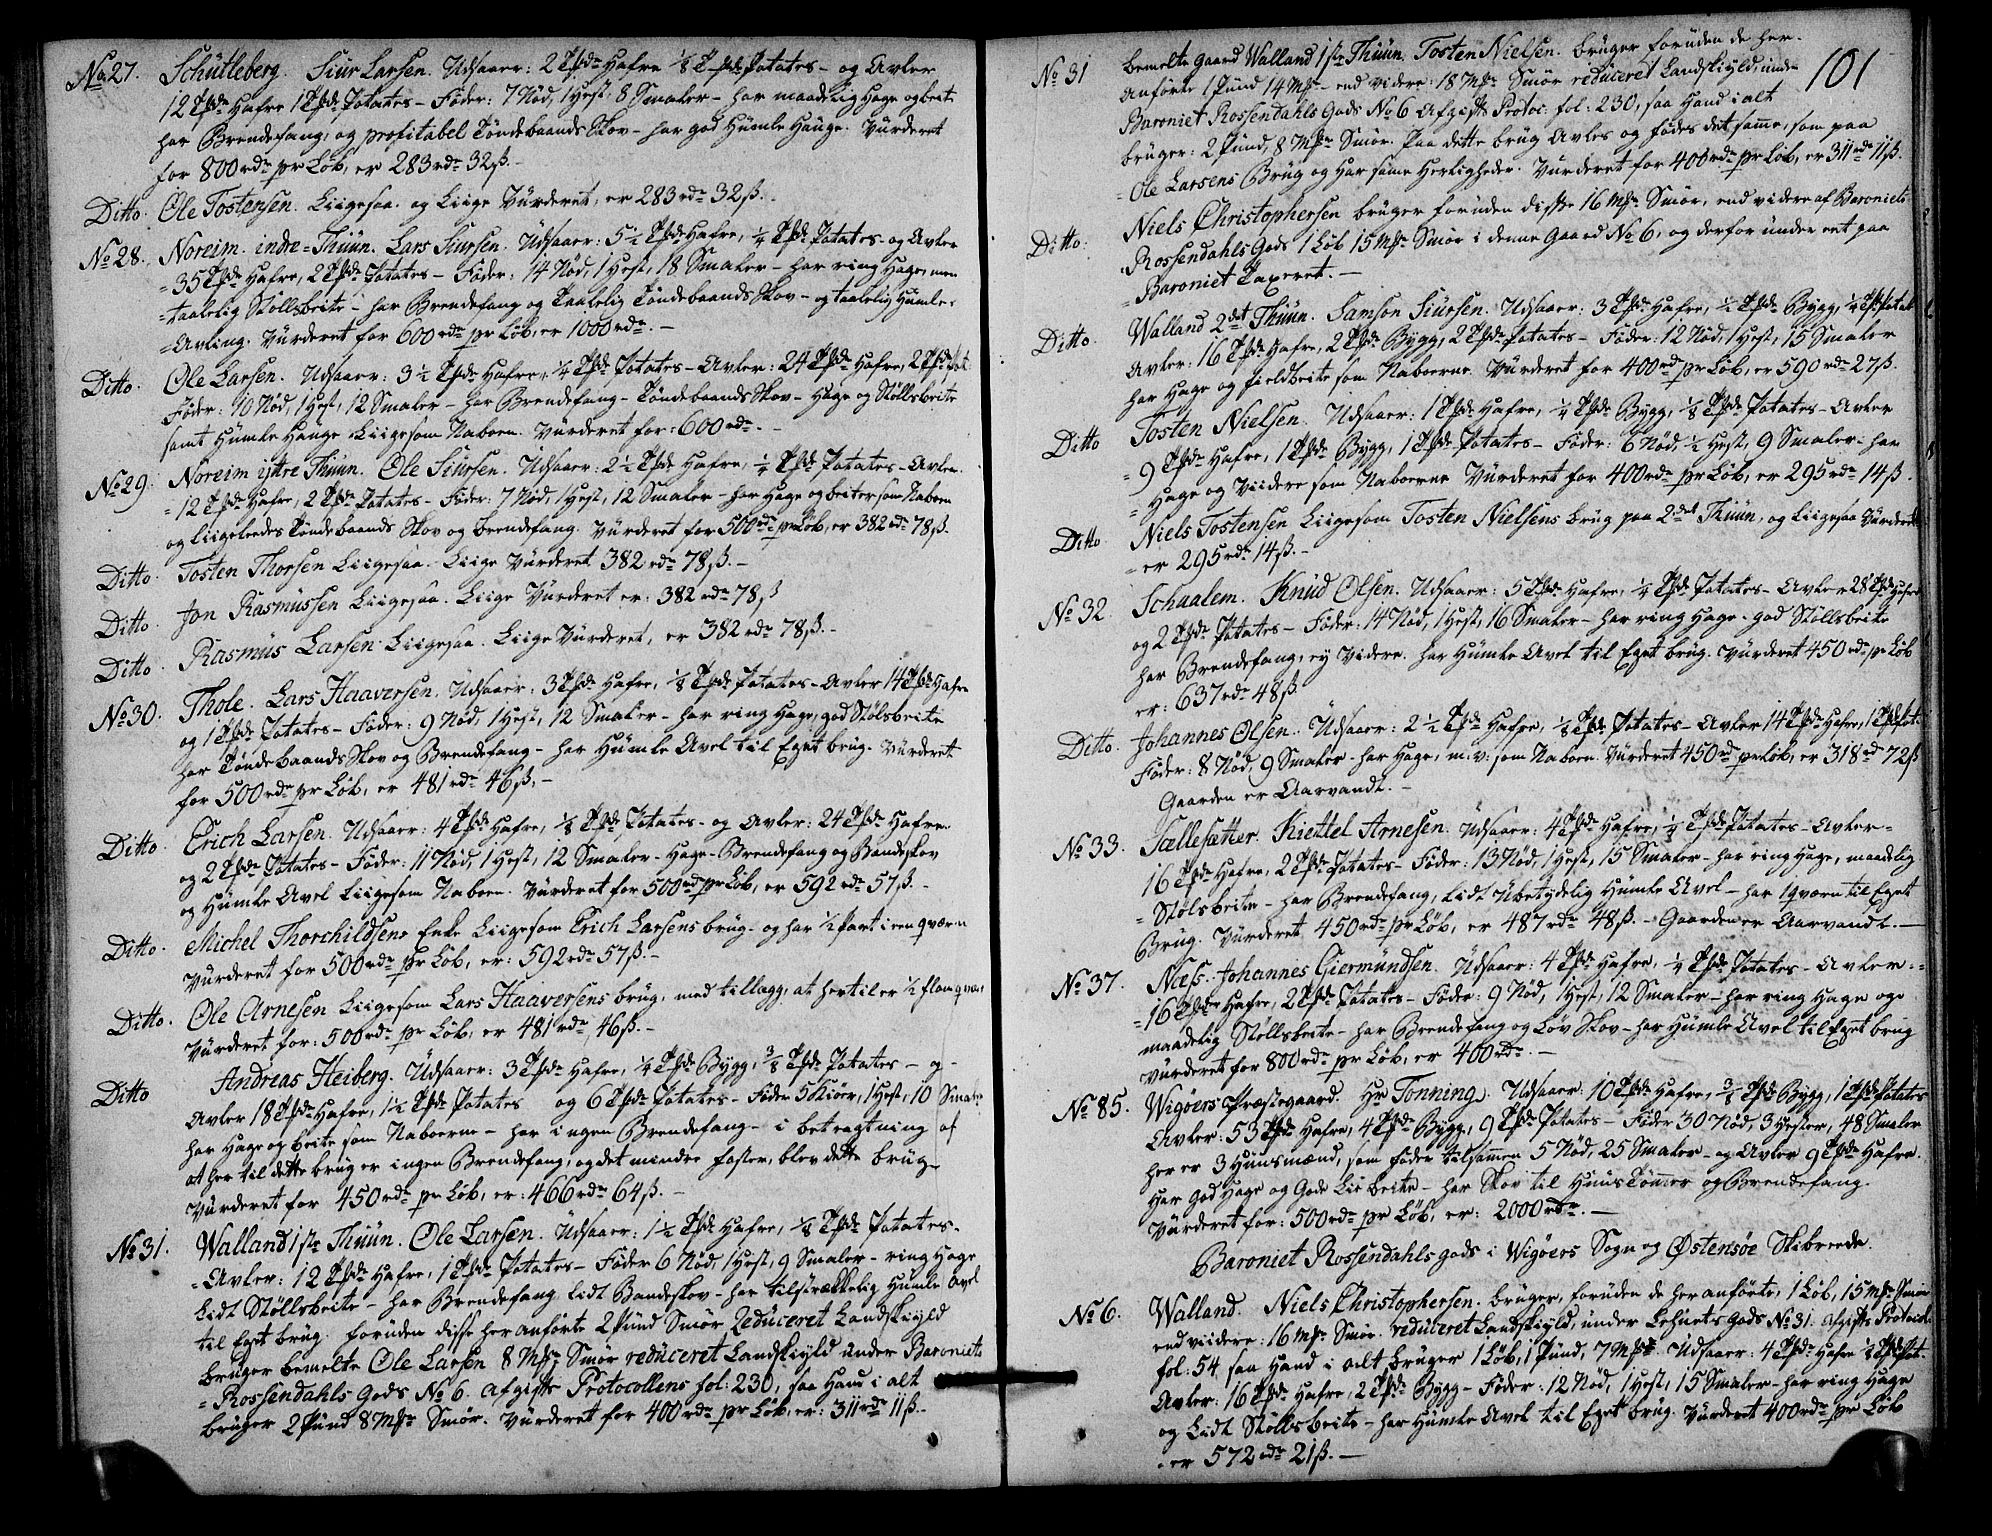 No 27. Schútleberg. Siur Larsen. Udsaaer: 2 Tþde Hafre ⅛ Tþde Potates - og Avler
12 Tþde Hafre 1 Tþde Potates - Föder: 7 Nöd, 1 Hest, 8 Smaler - har maadelig Hage og beite
har Brendefang, og profitabel Töndebaands Skov - har god Húmle Hauge. Vúrderet
for 800 rdr pr Löb, er 283 rdr 32 ß. -
Ditto. Ole Tostensen. Liigesaa. og Liige Vúrderet, er 283 rdr 32 ß. -
No 28. Noreim. indre = Thúún. Lars Siursen. Udsaaer: 5 ½ Tþde Hafre, ¼ Tþde Potates - og Avler
= 35 Tþde Hafre, 2 Tþde Potates - Föder: 14 Nöd, 1 Hest, 18 Smaler - har ring Hage, men
= taalelig Stöllsbeite - har Brendefang og Taalelig Töndebaands Skov - og taalelig Húmle =
= Avling. Vúrderet for 600 rdr pr Löb, er 1000 rdr. -
Ditto. Ole Larsen. Udsaaer: 3 ½ Tþde Hafre, ¼ Tþde Potates - Avler: 24 Tþde Hafre, 2 Tþde Pot:
Föder: 10 Nöd, 1 Hest, 12 Smaler - har Brendefang - Töndebaands Skov - Hage og Stöllsbeite
samt Húmle Hauge Liigesom Naboen. Vúrderet for: 600 rdr. -
No 29. Noreim ytre Thúún. Ole Siúrsen. Udsaaer: 2 ½ Tþde Hafre, ¼ Tþde Potates - Avler
= 12 Tþde Hafre, 2 Tþde Potates - Föder: 7 Nöd, 1 Hest, 12 Smaler - har Hage og beiter som Naboen
og Liigeledes Töndebaands Skov og brendefang. Vúrderet for 500 rdr pr Löb, er 382 rdr 78 ß.
Ditto. Tosten Thorsen Liigesaa. Liige Vúrderet 382 rdr 78 ß. -
Ditto. Jon Rasmússen Liigesaa. Liige Vúrderet er: 382 rdr 78 ß
Ditto. Rasmús Larsen. Liigesaa. Liige Vúrderet, er 382 rdr 78 ß. -
No 30. Thole. Lars Haaversen. Udsaaer: 3 Tþde Hafre, ⅛ Tþde Potates - Avler 14 Tþde Hafre
og 1 Tþde Potates - Föder: 9 Nöd, 1 Hest, 12 Smaler - har ring Hage, god Stölsbeite
har Töndebaands Skov og Brendefang - har Húmle Avel til Eget brúg. Vúrderet
for 500 rdr pr Löb, er 481 rdr 46 ß. -
Ditto. Erich Larsen. Udsaaer: 4 Tþde Hafre, ⅛ Tþde Potates - og Avler: 24 Tþde Hafre
og 2 Tþde Potates - Föder: 11 Nöd, 1 Hest, 12 Smaler - Hage - Brendefang og Bandeskov
og Húmle Avel Liigesom Naboen. Vúrderet for 500 rdr pr Löb, er 592 rdr 57 ß. -
Ditto. Michel Thorchildsens Enke Liigesom Erich Larsens brúg - og har ½ Part i een qværn
Vúrderet for 500 rdr pr Löb, er: 592 rdr 57 ß. -
Ditto. Ole Arnesen Liigesom Lars Haaversens brúg, med tillæg, at hertil er ½ flom qværn
Vúrderet for: 500 rdr pr Löb, er 481 rdr, 46 ß. -
Ditto Andreas Heiberg. Udsaaer: 3 Tþde Hafre, ¼ Tþde Bygg, ⅜ Tþde Potates - og -
Avler 18 Tþde Hafre, 1 ½ Tþde Potates og 6 Tþde Potates - Föder 5 Kiöer, 1 Hest, 10 Smaler
har Hage og beite som Naboerne - har ingen Brendefang - i betragtning af
at her til dette brúg er ingen Brendefang, og det mindre foster, blev dette brúg -
Vúrderet for 450 rdr pr Löb, er: 466 rdr 64 ß. -
No 31. Walland 1ste Thúún. Ole Larsen. Udsaaer: 1 ½ Tþde Hafre, ⅛ Tþde Potates -
= Avler: 12 Tþde Hafre, 1 Tþde Potates - Föder 6 Nöd, 1 Hest, 9 Smaler - ring Hage
Lidt Stöllsbeite - har Brendefang Lidt Bandeskov - har tilstrækkelig Húmle Avel
til Eget brúg. foruden disse her anförte 2 Púnd Smör Redúceret Landskyld
brúger bemelte Ole Larsen 8 Mþr Smör redúceret Landskyld únder Baroniets
= Rossendahls gods No 6. Afgifts Protocollens fol: 230, saa Hand i alt
brúger 2 Púnd 8 Mþr Smör. Vúrderet for 400 rdr pr Löb, er: 311 rdr 11 ß. -
101
No 31 bemelte gaard Walland 1ste Thúún. Tosten Nielsen. brúger foruden de her =
Anförte 1 Púnd 14 Mþr - end videre: 18 Mþr Smör redúceret Landskyld, únder
Baroniet Rossendahls Gods No 6 Afgifts Protoc: fol: 230, saa Hand i alt
brúger: 2 Púnd, 8 Mþr Smör. Paa dette brúg Avles og födes det samme, som paa
= Ole Larsens Brúg og har same Herligheder. Vúrderet for 400 rdr pr Löb, er 311 rdr 11 ß.
Ditto. Niels Christophersen brúger foruden disse 16 Mþr Smör, end videre af Baroniets
Rossendahls Gods 1 Löb 15 Mþr Smör i denne gaard No 6, og derfor únder eet paa
= Baroniet Taxeret. -
Ditto. Walland 2det Thúún. Samson Siúrsen. Udsaaer: 3 Tþde Hafre, ½ Tþde Bygg, ¼ Tþde Potat:
Avler: 16 Tþde Hafre, 2 Tþde Bygg, 2 Tþde Potates - Föder: 12 Nöd, 1 Hest, 15 Smaler
har Hage og fieldbeite som Naboerne. Vúrderet for 400 rdr pr Löb, er 590 rdr 27 ß.
Ditto Tosten Nielsen. Udsaaer: 1 Tþde Hafre, ¼ Tþde Bygg, ⅛ Tþde Potates - Avler
= 9 Tþde Hafre, 1 Tþde Bygg, 1 Tþde Potates - Föder: 6 Nöd, ½ Hest, 9 Smaler - har
= Hage og Viidere som Naboerne Vúrderet for 400 rdr pr Löb, er 295 rdr 14 ß.
Ditto Niels Tostensen Liigesom Tosten Nielsens brúg paa 2det Thúún, og Liigesaa Vúrderet
= er 295 rdr 14 ß. -
No 32. Schaalem. Knúd Olsen. Udsaaer: 5 Tþde Hafre, ¼ Tþde Potates - Avler 28 Tþde Hafre
og 2 Tþde Potates - Föder: 14 Nöd, 1 Hest, 16 Smaler - har ring Hage - god Stöllsbeite
har Brendefang, ey Videre. har Húmle Avel til Eget brúg. Vúrderet 450 rdr pr Löb
er: 637 rdr 48 ß.
Ditto. Johannes Olsen. Udsaaer: 2 ½ Tþde Hafre, ⅛ Tþde Potates - Avler 14 Tþde Hafre, 1 Tþde Pot:
Föder: 8 Nöd, 9 Smaler - har Hage, m: v: som Naboen. Vúrderet 450 rdr pr Löb, er 318 rdr 72 ß
Gaarden er Aarvandt. -
No 33. Sællesætter. Kiettel Arnesen. Udsaaer: 4 Tþde Hafre, ¼ Tþde Potates - Avler =
16 Tþde Hafre, 2 Tþde Potates - Föder: 13 Nöd, 1 Hest, 15 Smaler - har ring Hage, maadlig
= Stölsbeite - har Brendefang, Lidt Ubetydelig Húmle Avel - har 1 qværn til Eget
Brúg. Vúrderet 450 rdr pr Löb, er 487 rdr 48 ß. - Gaarden er Aarvandt. -
No 37. Næs. Johannes Giermúndsen. Udsaaer: 4 Tþde Hafre, ¼ Tþde Potates - Avler =
= 16 Tþder Hafre, 2 Tþde Potates - Föder: 9 Nöd, 1 Hest, 12 Smaler - har ring Hage og
maadelig Stöllsbeite - har Brendefang og Löv Skov - har Húmle Avel til Eget brúg
Vúrderet for 800 rdr pr Löb, er 400 rdr. -
No 85. Wigöers Præstegaard. Hr Tonning. Udsaaer: 10 Tþde Hafre, ¾ Tþde Bygg, 1 Tþde Potates
Avler: 53 Tþde Hafre, 4 Tþde Bygg, 9 Tþde Potates - Föder 30 Nöd, 3 Hester, 48 Smaler
her er 3 Húusmænd, som föder tilsammen 5 Nöd, 25 Smaler - og Avler 9 Tþde Hafre.
Har god Hage og gode Lie beite - har Skov til Húús Tömmer og Brendefang.
Vúrderet for: 500 rdr pr Löb, er: 2000 rdr. -
Baroniet Rossendahls gods i Wigöers Sogn og Östensöe Skibreede.
No 6. Walland. Niels Christophersen. brúger, foruden de her anförte, 1 Löb, 15 Mþr Smör
end viidere: 16 Mþr Smör. redúceret Landskyld, únder Lehnets gods No 31. Afgifts Protocol:
fol: 54, saa Hand i alt brúger 1 Löb, 1 Púnd, 7 Mþr. Udsaaer: 4 Tþde Hafre ⅛ Tþde Pot:
Avler: 16 Tþde Hafre, 2 Tþde Bygg - Föder: 12 Nöd, 1 Hest, 15 Smaler - har ring Hage
og Lidt Stöllsbeite - har Húmle Avel til Eget brúg. Vúrderet 400 rdr pr Löb
er 572 rdr 21 ß. -